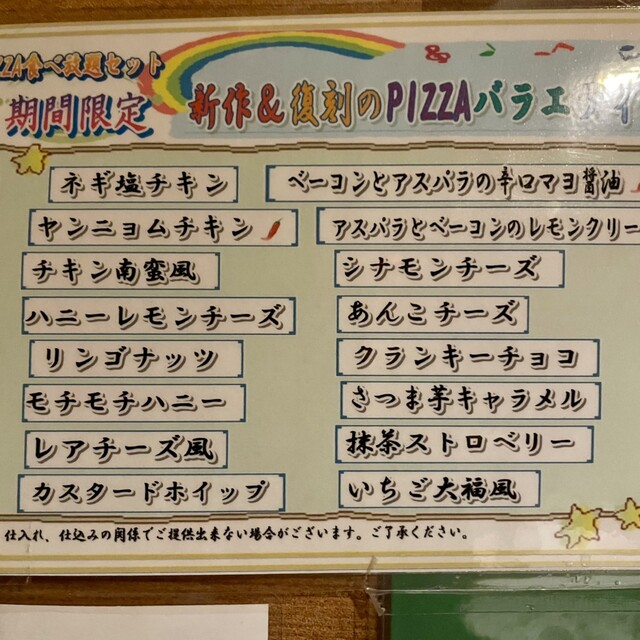 ZZA食べ放題セット
期間限定
新作＆復刻のPIZZAバラエ
ネギ塩チキン
ヤンニョムチキン
チキン南蛮風
ハニーレモンチーズ
リンゴナッツ
モチモチハニー
レアチーズ風
カスタードホイップ
ベーコンとアスパラの辛口マヨ醤油
アスパラとベーコンのレモンクリー
シナモンチーズ
あんこチーズ
クランキーチョコ
さつま芋キャラメル
抹茶ストロベリー
いちご大福風
仕入れ、仕込みの関係でご提供出来ない場合がございます。ご了承ください。